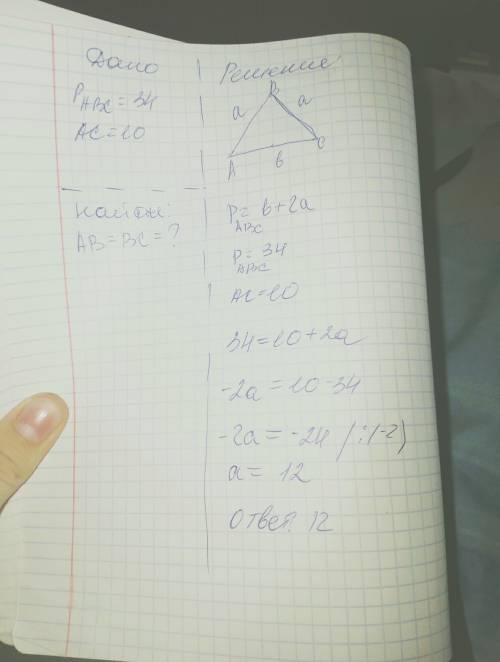 Дано
P ABC = 34
AC = 10
Найти:
AB = BC = ?
Решение
B
a
a
A
b
C
P ABC = b + 2a
P ABC = 34
AC = 10
34 = 10 + 2a
-2a = 10 - 34
-2a = -24 /:(-2)
a = 12
Ответ: 12